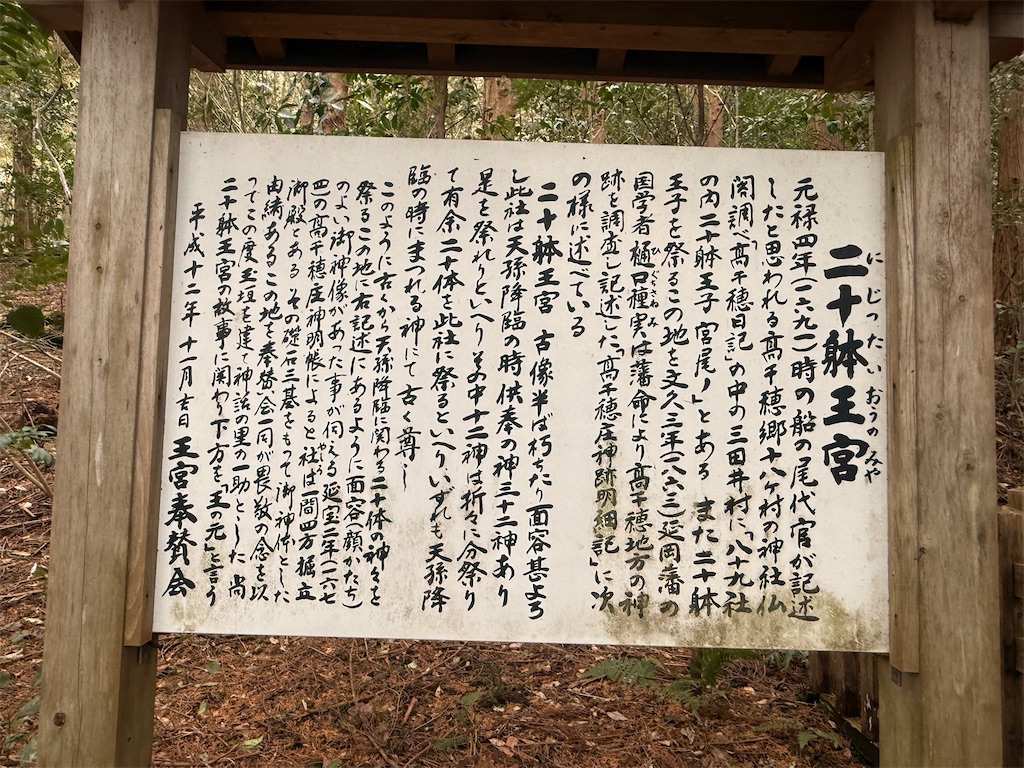 にじったいおうのみや
二十躰王宮
元禄四年(一六九一)時の船の尾代官が記述
したと思われる高千穂郷十八ケ村の神社仏
閣調べ「高千穂日記」の中の三田井村に「八十九社
の内二十躰王子 宮尾ノ」とある また二十躰
王子を祭るこの地を文久三年(一八六三)延岡藩の
国学者樋口種実は藩命により高千穂地方の神
ぐちさねみ
跡を調査し記述した「高千穂庄神跡明細記」に次
の様に述べている
二十躰王宮 古像半ば朽ちたり面容甚よろ
し此社は天孫降臨の時供奉の神三十二神あり
是を祭れりといへり その中十二神は折々に分祭り
て有余二十体を此社に祭るといへりいずれも天孫降
臨の時にまつれる神にて古く尊し
このように古くから天孫降臨に関わる二十体の神々を
祭るこの地に右記述にあるように面容(顔かたち)
のよい御神像があった事が伺える延宝二年(一六七
四)の高千穂庄神明帳によると社は一間四方掘立
御殿とある その礎石三基をもって御神体とした
由緒あるこの地を奉賛会一同が畏敬の念を以
ってこの度玉垣を建て神話の里の一助とした 尚
二十躰王宮の故事に関わり下方を「王の元」と言う
平成十二年 十一月吉日 王宮奉賛会